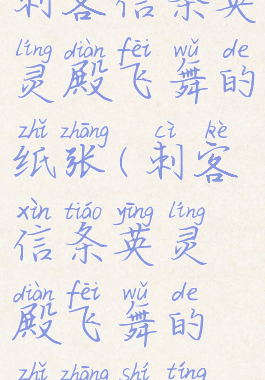 刺客信条英
líng diàn fēi wǔ de
灵殿飞舞的
zhǐ zhāng cì kè
纸张(刺客
xìn tiáo yīng líng
信条英灵
diàn fēi wǔ de
殿飞舞的
zhǐ zhāng shí tíng